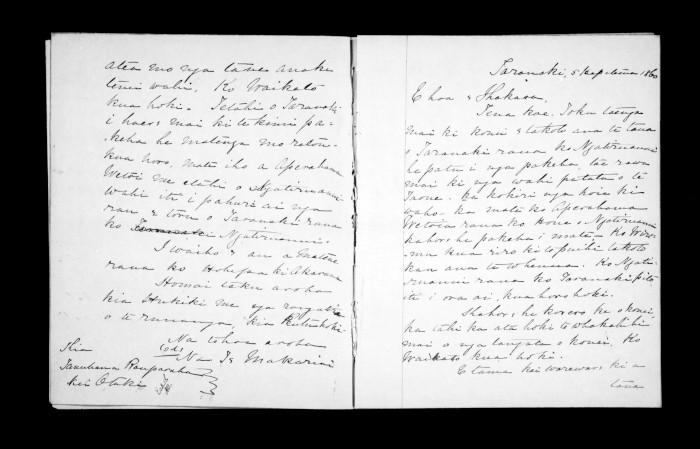 atea mo nga tane anake
tenei wahi. Ko Waikato
kua hoki. Tetahi o Taranaki
i haere mai ki te kimi pa-
keha he matenga mo ratou
kua horo, mate iho a Aperahama
me etahi o Ngatiruanui
wahi iti i pahure ai nga
rau e toru o Taranaki raua
ko Ngatiruanui.
I waiho e au a Matene
raua ko Hohepa ki
Homai taku aroha
kia Hukiki me nga rangatira
o te runanga, kia
Na tohou aroha
Na Te Makarini
Kia
Tamihana Rauparaha
kei Otaki
Taranaki, 5 Hepetema 1860
E hoa e
Tena koe. Toku taenga
mai ki konei e takoto ana te taua
o Taranaki raua ko Ngatiruanui
he patu i nga pakeha, tae rawa
mai ki nga wahi patata o te
Taone. Ka kokiri nga hoia ki
waho. ka mate ko Aperahama
raua ko Hone o Ngatiruanui
kahore he pakeha i mate. Ko
kua riro ki to ratou takoto
kau ana te whenua. Ko Ngati
ruanui raua ko Taranaki
te i ora ai, kua horo hoki.
Kahore he korero ke o konei,
ka tahi ka ata hoki te whakahihi
mai o nga tangata o konei. Ko
Waikato kua hoki.
E tama kei wareware ki a
taua